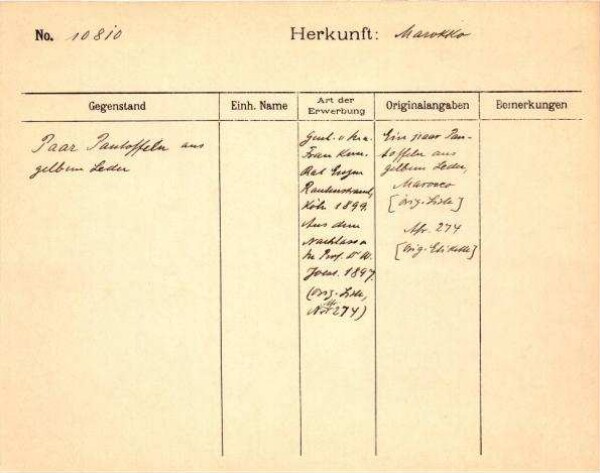 No. 10810
Herkunft: Marokko
Gegenstand
Einh. Name
Art der
Erwerbung
Originalangaben
Bemerkungen
Paar Pantoffeln aus
gelbem Leder
Frau Kom.
Rat Eugen
Rautenstrauch,
Köln 1899.
Aus dem
Nachlass
Prof. Dr W.
Joest. 1897.
(Orig. Liste,
Afr. 274)
Ein paar Pan-
toffeln aus
gelbem Leder,
Marocco
[Orig. Liste]
Afr. 274
[Orig. Etikette]